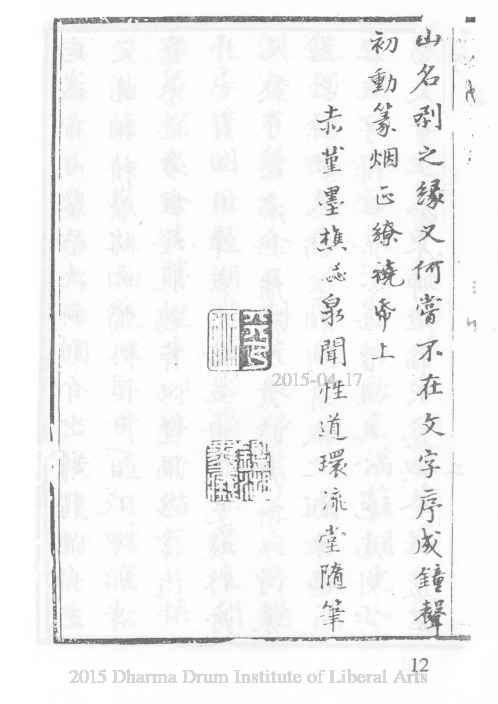 山名刹之緣又何嘗不在文字序成鐘聲
初動篆烟正繚繞帘上
赤堇墨樵忞泉聞性道環流堂隨筆
2015-04-17
12
2015 Dharma Drum Institute of Liberal Arts